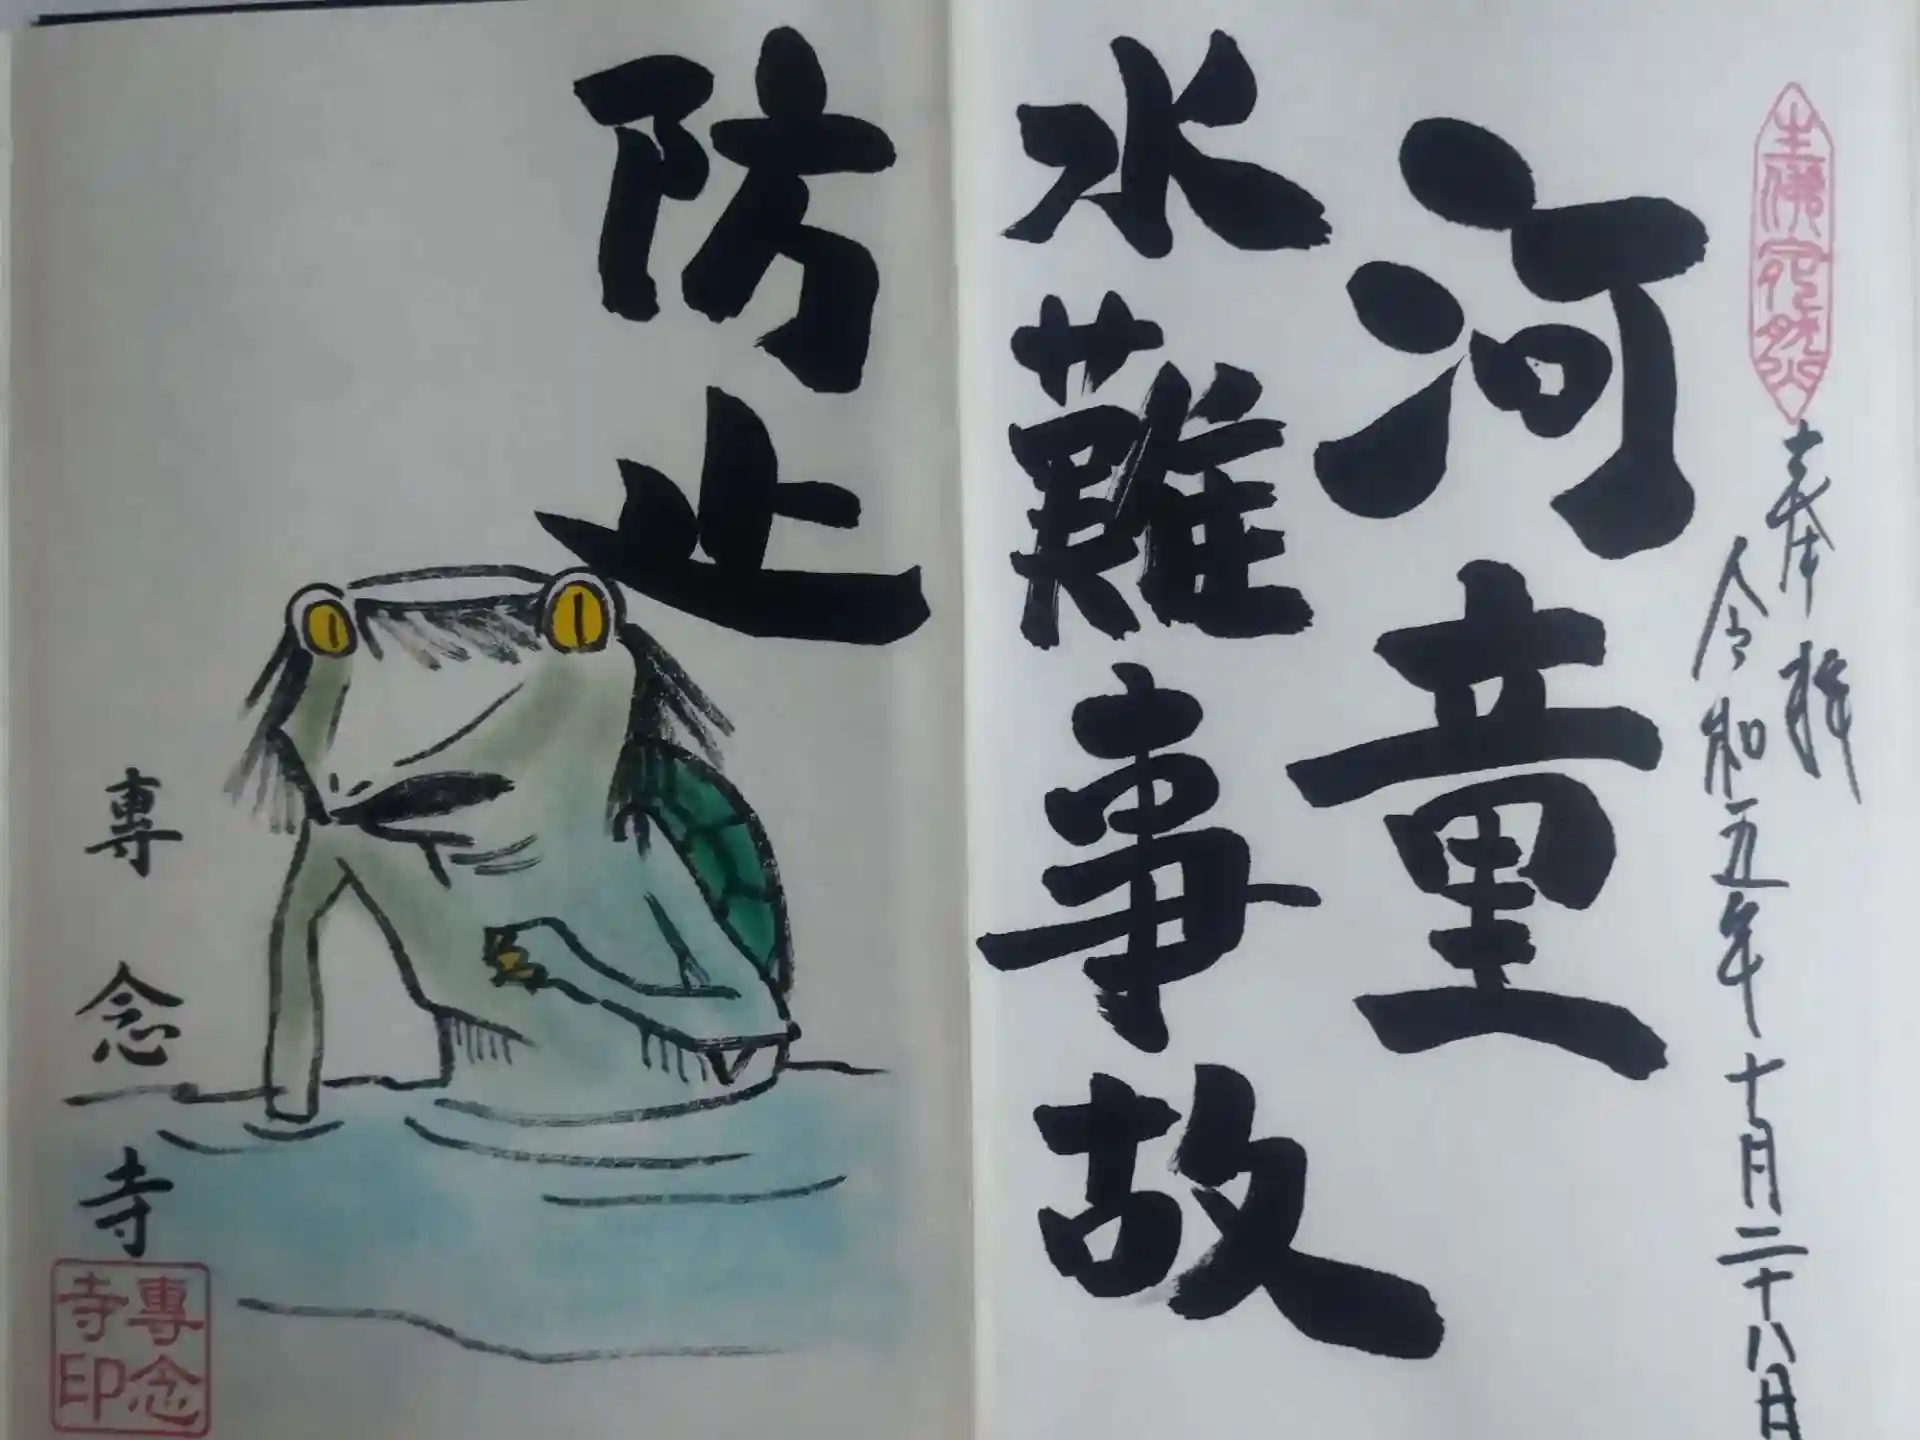 奉拝
令和五年十月二十八日
河童
水難事故
防止
專念寺
專念
寺印